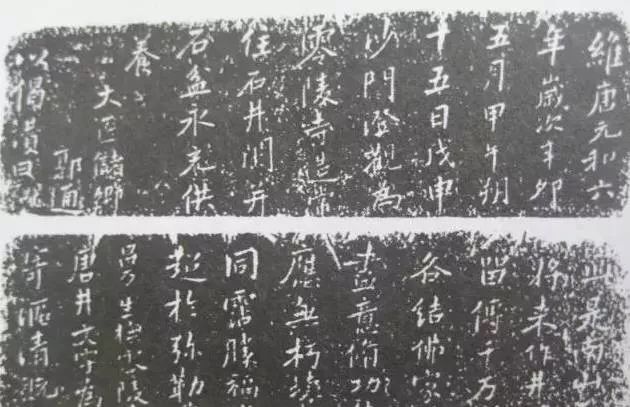 維唐元和六
年歲次辛卯
五月甲午朔
十五日戊申
沙門澄觀為
零陵寺造常
住石井闌并
石盆永充供
養
大匠儲卿
郭通
以偈讚曰
此是南山
將來作井
留傳千万
各結佛家
盡意修功
應無朽壞
同霑勝福
超於弥勒
唐井文字
清